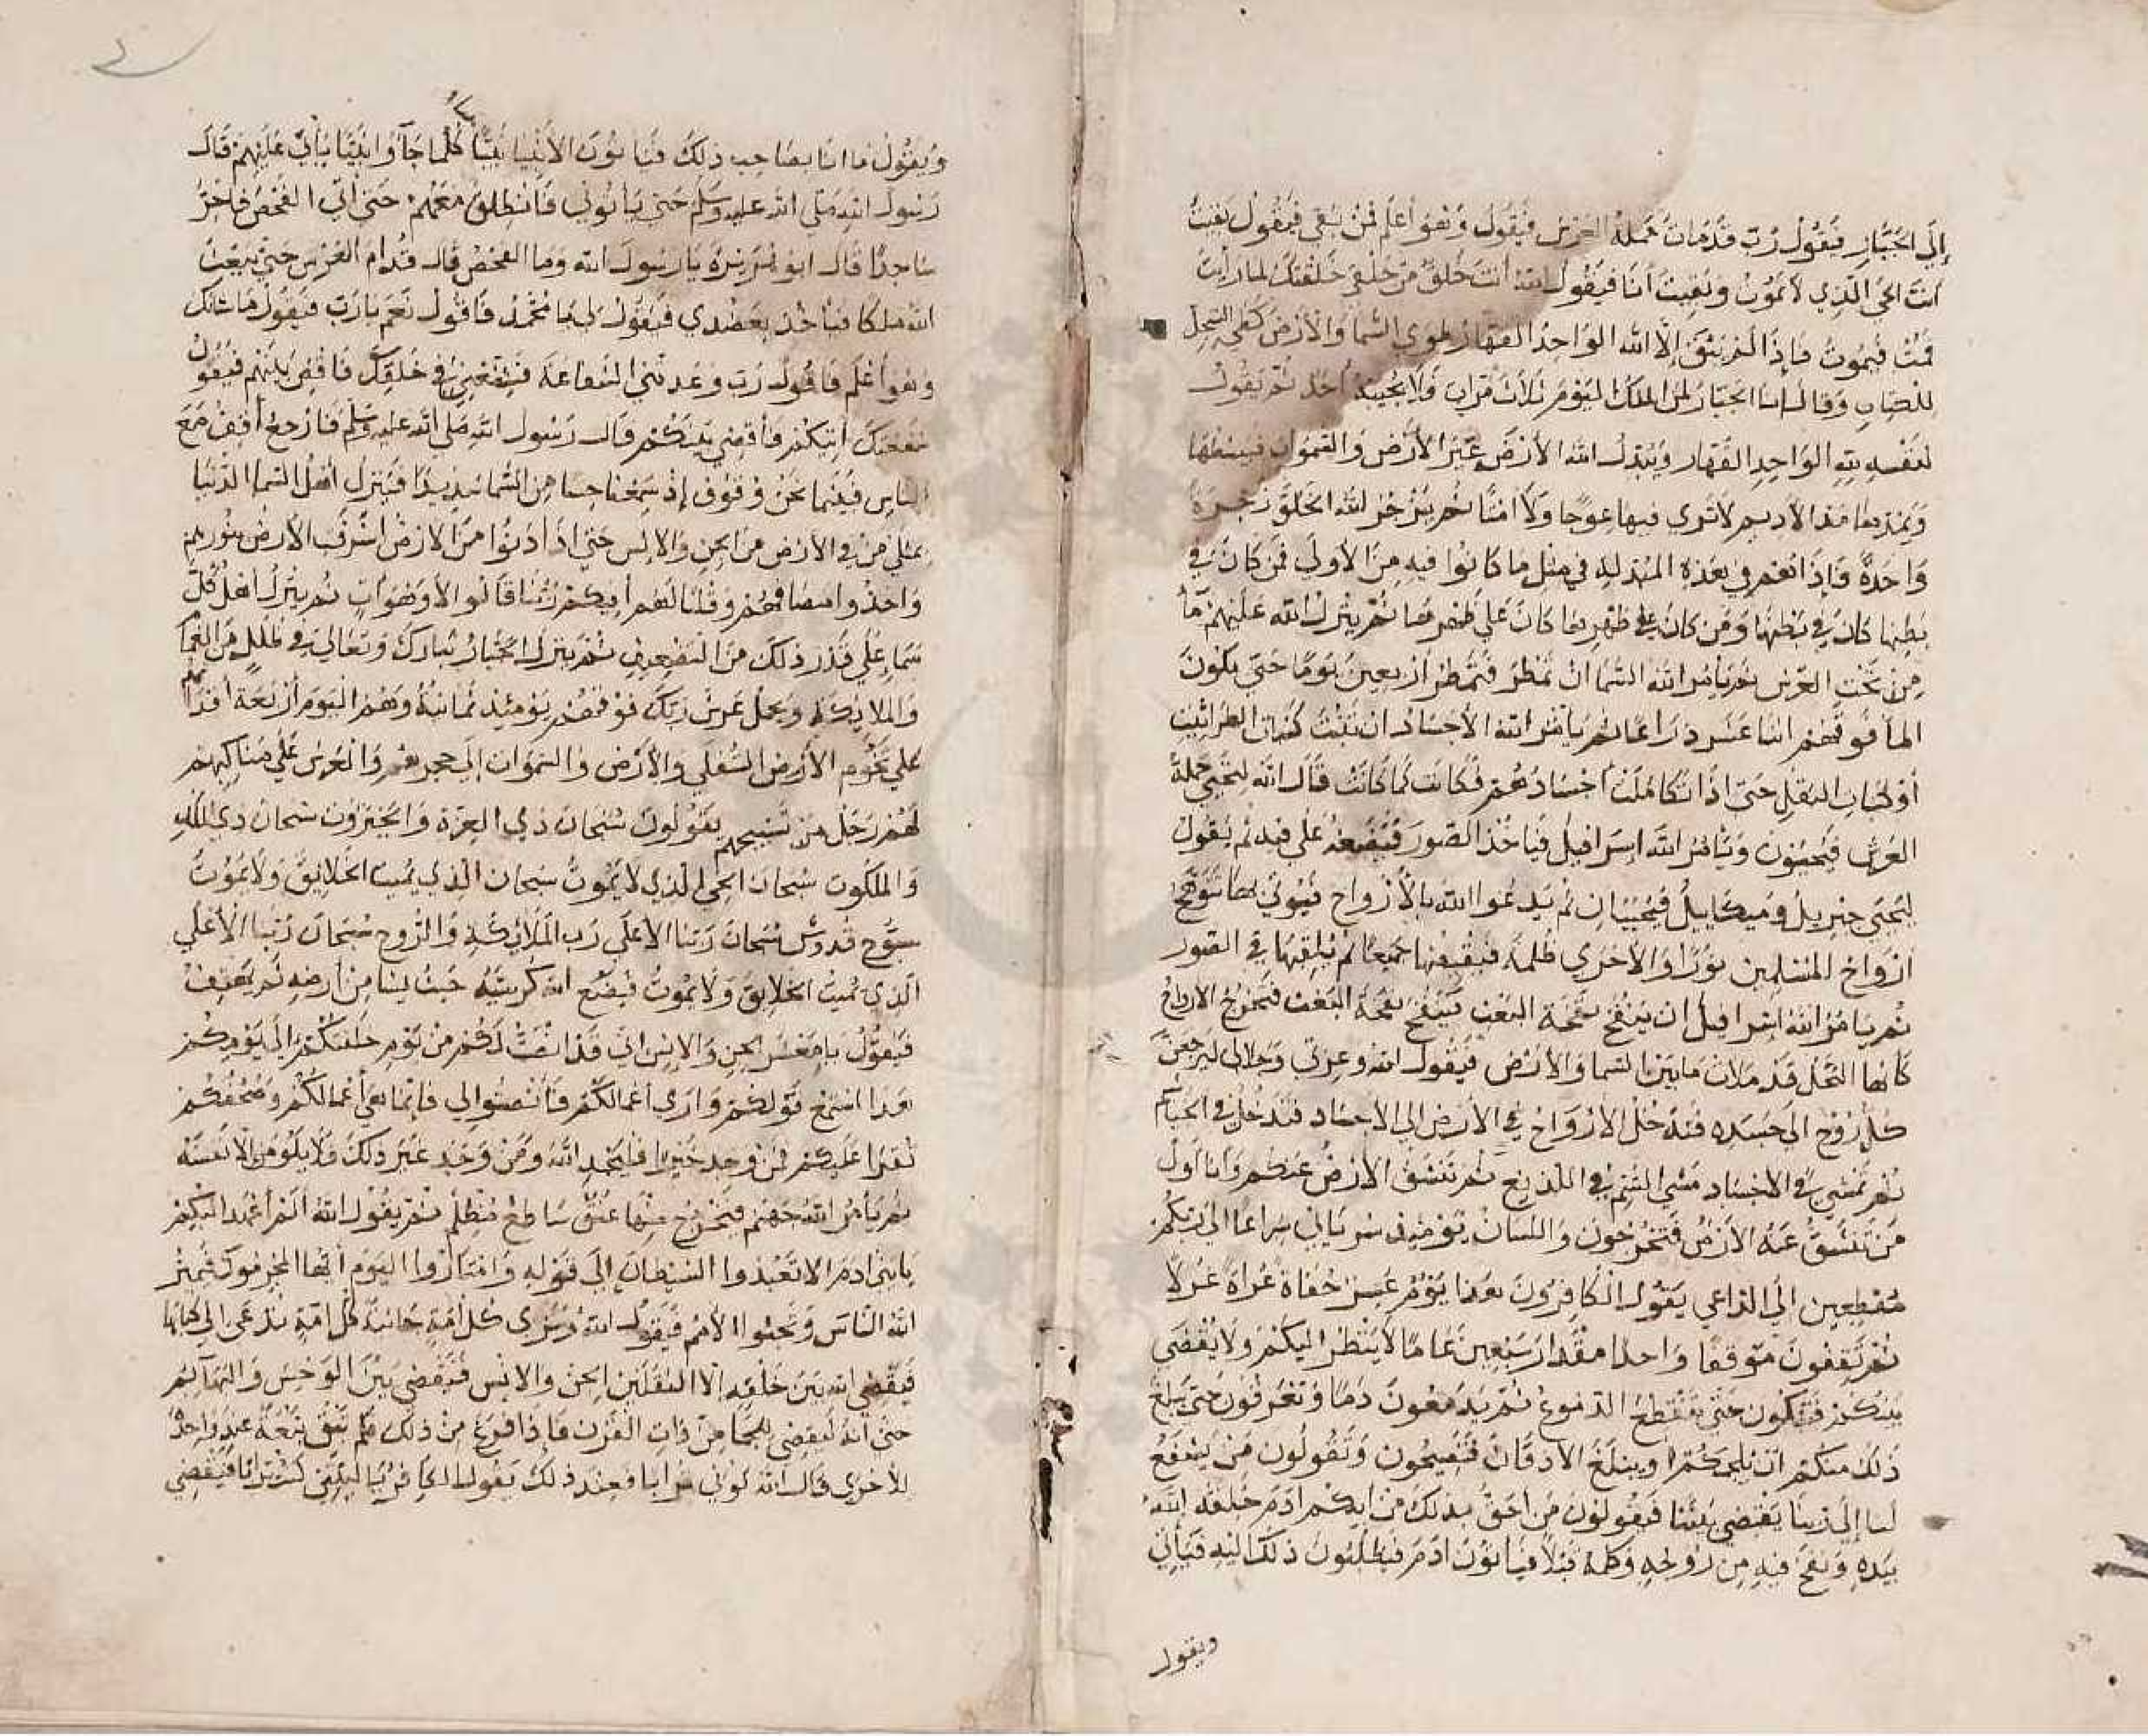 إلى الجبار فيقول رب قد مات حملة العرش فيقول وهو أعلم فمن بقي فيقول بقيت
أنت الحي الذي لا تموت وبقيت أنا فيقول الله أنت خلق من خلقي خلقتك لما رأيت
فمت فيموت فإذا لم يبق إلا الله الواحد القهار طوى السما والأرض كطي السجل
للكتاب وقال أنا الجبار لمن الملك اليوم ثلاث مرات ولا يجيبه أحد ثم يقول
لنفسه لله الواحد القهار ويبدل الله الأرض غير الأرض والسموات فيبسطها
ويمدها مد الأديم لا ترى فيها عوجا ولا أمتا ثم يزجر الله الخلق زجرة
واحدة فإذا هم في هذه المبدلة في مثل ما كانوا فيه من الأولى فمن كان في
بطنها كان في بطنها ومن كان على ظهرها كان على ظهرها ثم ينزل الله عليهم ما
من تحت العرش ثم يأمر الله السما ان تمطر فتمطر أربعين يوما حتى يكون
الما فوقهم اثنا عشر ذراعا ثم يأمر الله الأجساد ان تنبت كنبات الطراثيث
أو كنبات البقل حتى اذا تكاملت أجسادهم فكانت كما كانت قال الله ليحيى حملة
العرش فيحيون ويأمر الله إسرافيل فيأخذ الصور فيضعه على فيه ثم يقول
ليحيى جبريل وميكاييل فيحييان ثم يدعوا الله بالأرواح فيوتى بها تتوهج
أرواح المسلمين نورا والأخرى ظلمة فيقبضها جميعا ثم يلقيها في الصور
ثم يأمر الله إسرافيل ان ينفخ نفخة البعث فينفخ نفخة البعث فتخرج الارواح
كأنها النحل قد ملات ما بين السما والأرض فيقول الله وعزتي وجلالي ليرجعن
كل روح الى جسده فتدخل الأرواح في الأرض الى الأجساد فتدخل في الخياشم
ثم تمشي في الأجساد مشي السم في اللديغ ثم تنشق الأرض عنكم وأنا أول
من تنشق عنه الأرض فتخرجون واللسان يومئذ سرياني سراعا الى ربكم
مهطعين إلى الداعي يقول الكافرون هذا يوم عسر حفاة عراة غرلا
ثم تقفون موقفا واحدا مقدار سبعين عاما لا ينظر اليكم ولا يقضى
بينكم فتبكون حتى تنقطع الدموع ثم يدمعون دما وتعرقون حتى يبلغ
ذلك منكم ان يلجمكم او يبلغ الأذقان فتصيحون وتقولون من يشفع
لنا إلى ربنا يقضي بيننا فيقولون من أحق بذلك من أبيكم آدم خلقه الله
بيده ونفخ فيه من روحه وكلمه قبلا فيأتون آدم فيطلبون ذلك اليه فيأبى
ويقول
ويقول ما انا بصاحب ذلك فيأتون الأنبيا نبيا نبيا كلما جاؤا نبيا يأبى عليهم قال
رسول الله صلى الله عليه وسلم حتى يأتوني فأنطلق معهم حتى آتي الفحص فأخر
ساجدا قال ابو هريرة يا رسول الله وما الفحص قال قدام العرش حتى يبعث
الله ملكا فيأخذ بعضدي فيقول لي يا محمد فأقول نعم يا رب فيقول ما شأنك
وهو أعلم فأقول رب وعدتني الشفاعة فشفعني في خلقك فاقض بينهم فيقول
شفعتك أتيكم فأقضي بينكم قال رسول الله صلى الله عليه وسلم فأرجع أقف مع
الناس فبينما نحن وقوف إذ سمعنا حسا من السما شديدا فينزل أهل السما الدنيا
بمثلي من في الأرض من الجن والانس حتى اذا دنوا من الارض أشرقت الأرض بنورهم
وأخذوا مصافهم وقلنا لهم أفيكم ربنا قالوا لا وهو آت ثم ينزل أهل كل
سما على قدر ذلك من التضعيف ثم ينزل الجبار تبارك وتعالى في ظلل من الغمام
والملايكة ويحمل عرش ربك فوقهم يومئذ ثمانية وهم اليوم أربعة أقدامهم
على تخوم الأرض السفلى والأرض والسموات إلى حجزهم والعرش على مناكبهم
لهم زجل من تسبيحهم يقولون سبحان ذي العزة والجبروت سبحان ذي الملك
والملكوت سبحان الحي الذي لا يموت سبحان الذي يميت الخلايق ولا يموت
سبوح قدوس سبحان ربنا الأعلى رب الملائكة والروح سبحان ربنا الأعلى
الذي يميت الخلايق ولا يموت فيضع الله كرسيه حيث يشا من أرضه ثم يهتف
فيقول يا معشر الجن والإنس اني قد انصت لكم من يوم خلقتكم إلى يومكم
هذا اسمع قولكم وأرى أعمالكم فأنصتوا لي فإنما هي أعمالكم وصحفكم
تقرا عليكم فمن وجد خيرا فليحمد الله ومن وجد غير ذلك فلا يلومن الا نفسه
ثم يأمر الله جهنم فيخرج منها عنق ساطع مظلم ثم يقول الله ألم أعهد اليكم
يا بني آدم الا تعبدوا الشيطان إلى قوله وامتازوا اليوم أيها المجرمون فيميز
الله الناس وتجثوا الأمم فيقول الله وترى كل أمة جاثية كل أمة تدعى إلى كتابها
فيقضي الله بين خلقه إلا الثقلين الجن والانس فيقضي بين الوحش والبهائم
حتى انه ليقضي للجما من ذات القرن فإذا فرغ من ذلك فلم تبق تبعة عند واحدة
للأخرى قال الله كوني ترابا فعند ذلك يقول الكافر يا ليتني كنت ترابا فيقضي